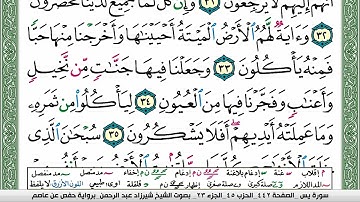 أَنَّهُمْ إِلَيْهِمْ لَا يَرْجِعُونَ ٣١ وَإِن كُلٌّ لَّمَّا جَمِيعٌ لَّدَيْنَا مُحْضَرُونَ
٣٢ وَءَايَةٌ لَّهُمُ الْأَرْضُ الْمَيْتَةُ أَحْيَيْنَاهَا وَأَخْرَجْنَا مِنْهَا حَبًّا
فَمِنْهُ يَأْكُلُونَ ٣٣ وَجَعَلْنَا فِيهَا جَنَّاتٍ مِّن نَّخِيلٍ
وَأَعْنَابٍ وَفَجَّرْنَا فِيهَا مِنَ الْعُيُونِ ٣٤ لِيَأْكُلُوا مِن ثَمَرِهِ
وَمَا عَمِلَتْهُ أَيْدِيهِمْ أَفَلَا يَشْكُرُونَ ٣٥ سُبْحَانَ الَّذِي
سورة يس . الصفحة ٤٤٢ . الحزب ٤٥ . الجزء ٢٣ . بصوت الشيخ شيرزاد عبد الرحمن . برواية حفص عن عاصم